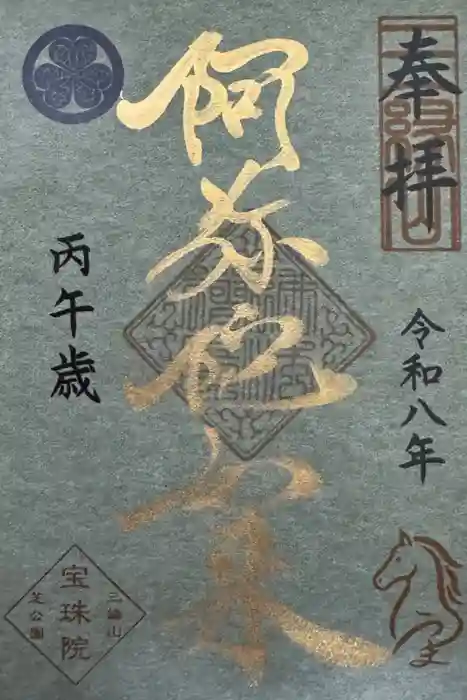 奉拝
令和八年
阿弥陀如来
丙午歳
三縁山
宝珠院
芝公園